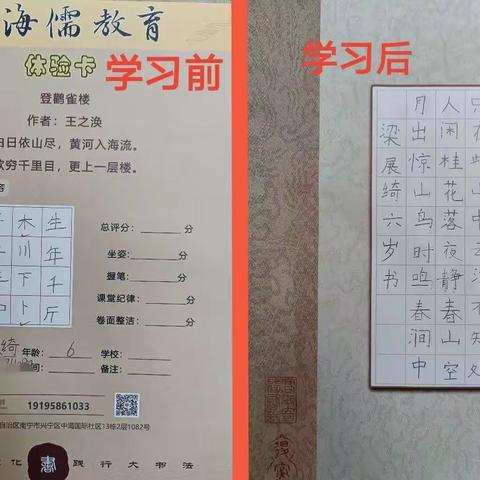 海儒教育
体验卡
学习前
登鹳雀楼
作者：王之涣
日依山尽，黄河入海流。
穷千里目，更上一层楼。
木 生
川 年
下 千
卜 斤
总评分：______分
坐姿:______分
握笔：______分
课堂纪律：______分
卷面整洁：______分
绮 年龄：6 学校：
间： 备注：
19195861033
自治区南宁市兴宁区中海国际社区13栋2层1082号
化 书 践行大书法
学习后
人闲桂花落夜静春山空
月出惊山鸟时鸣春涧中
梁展绮六岁书